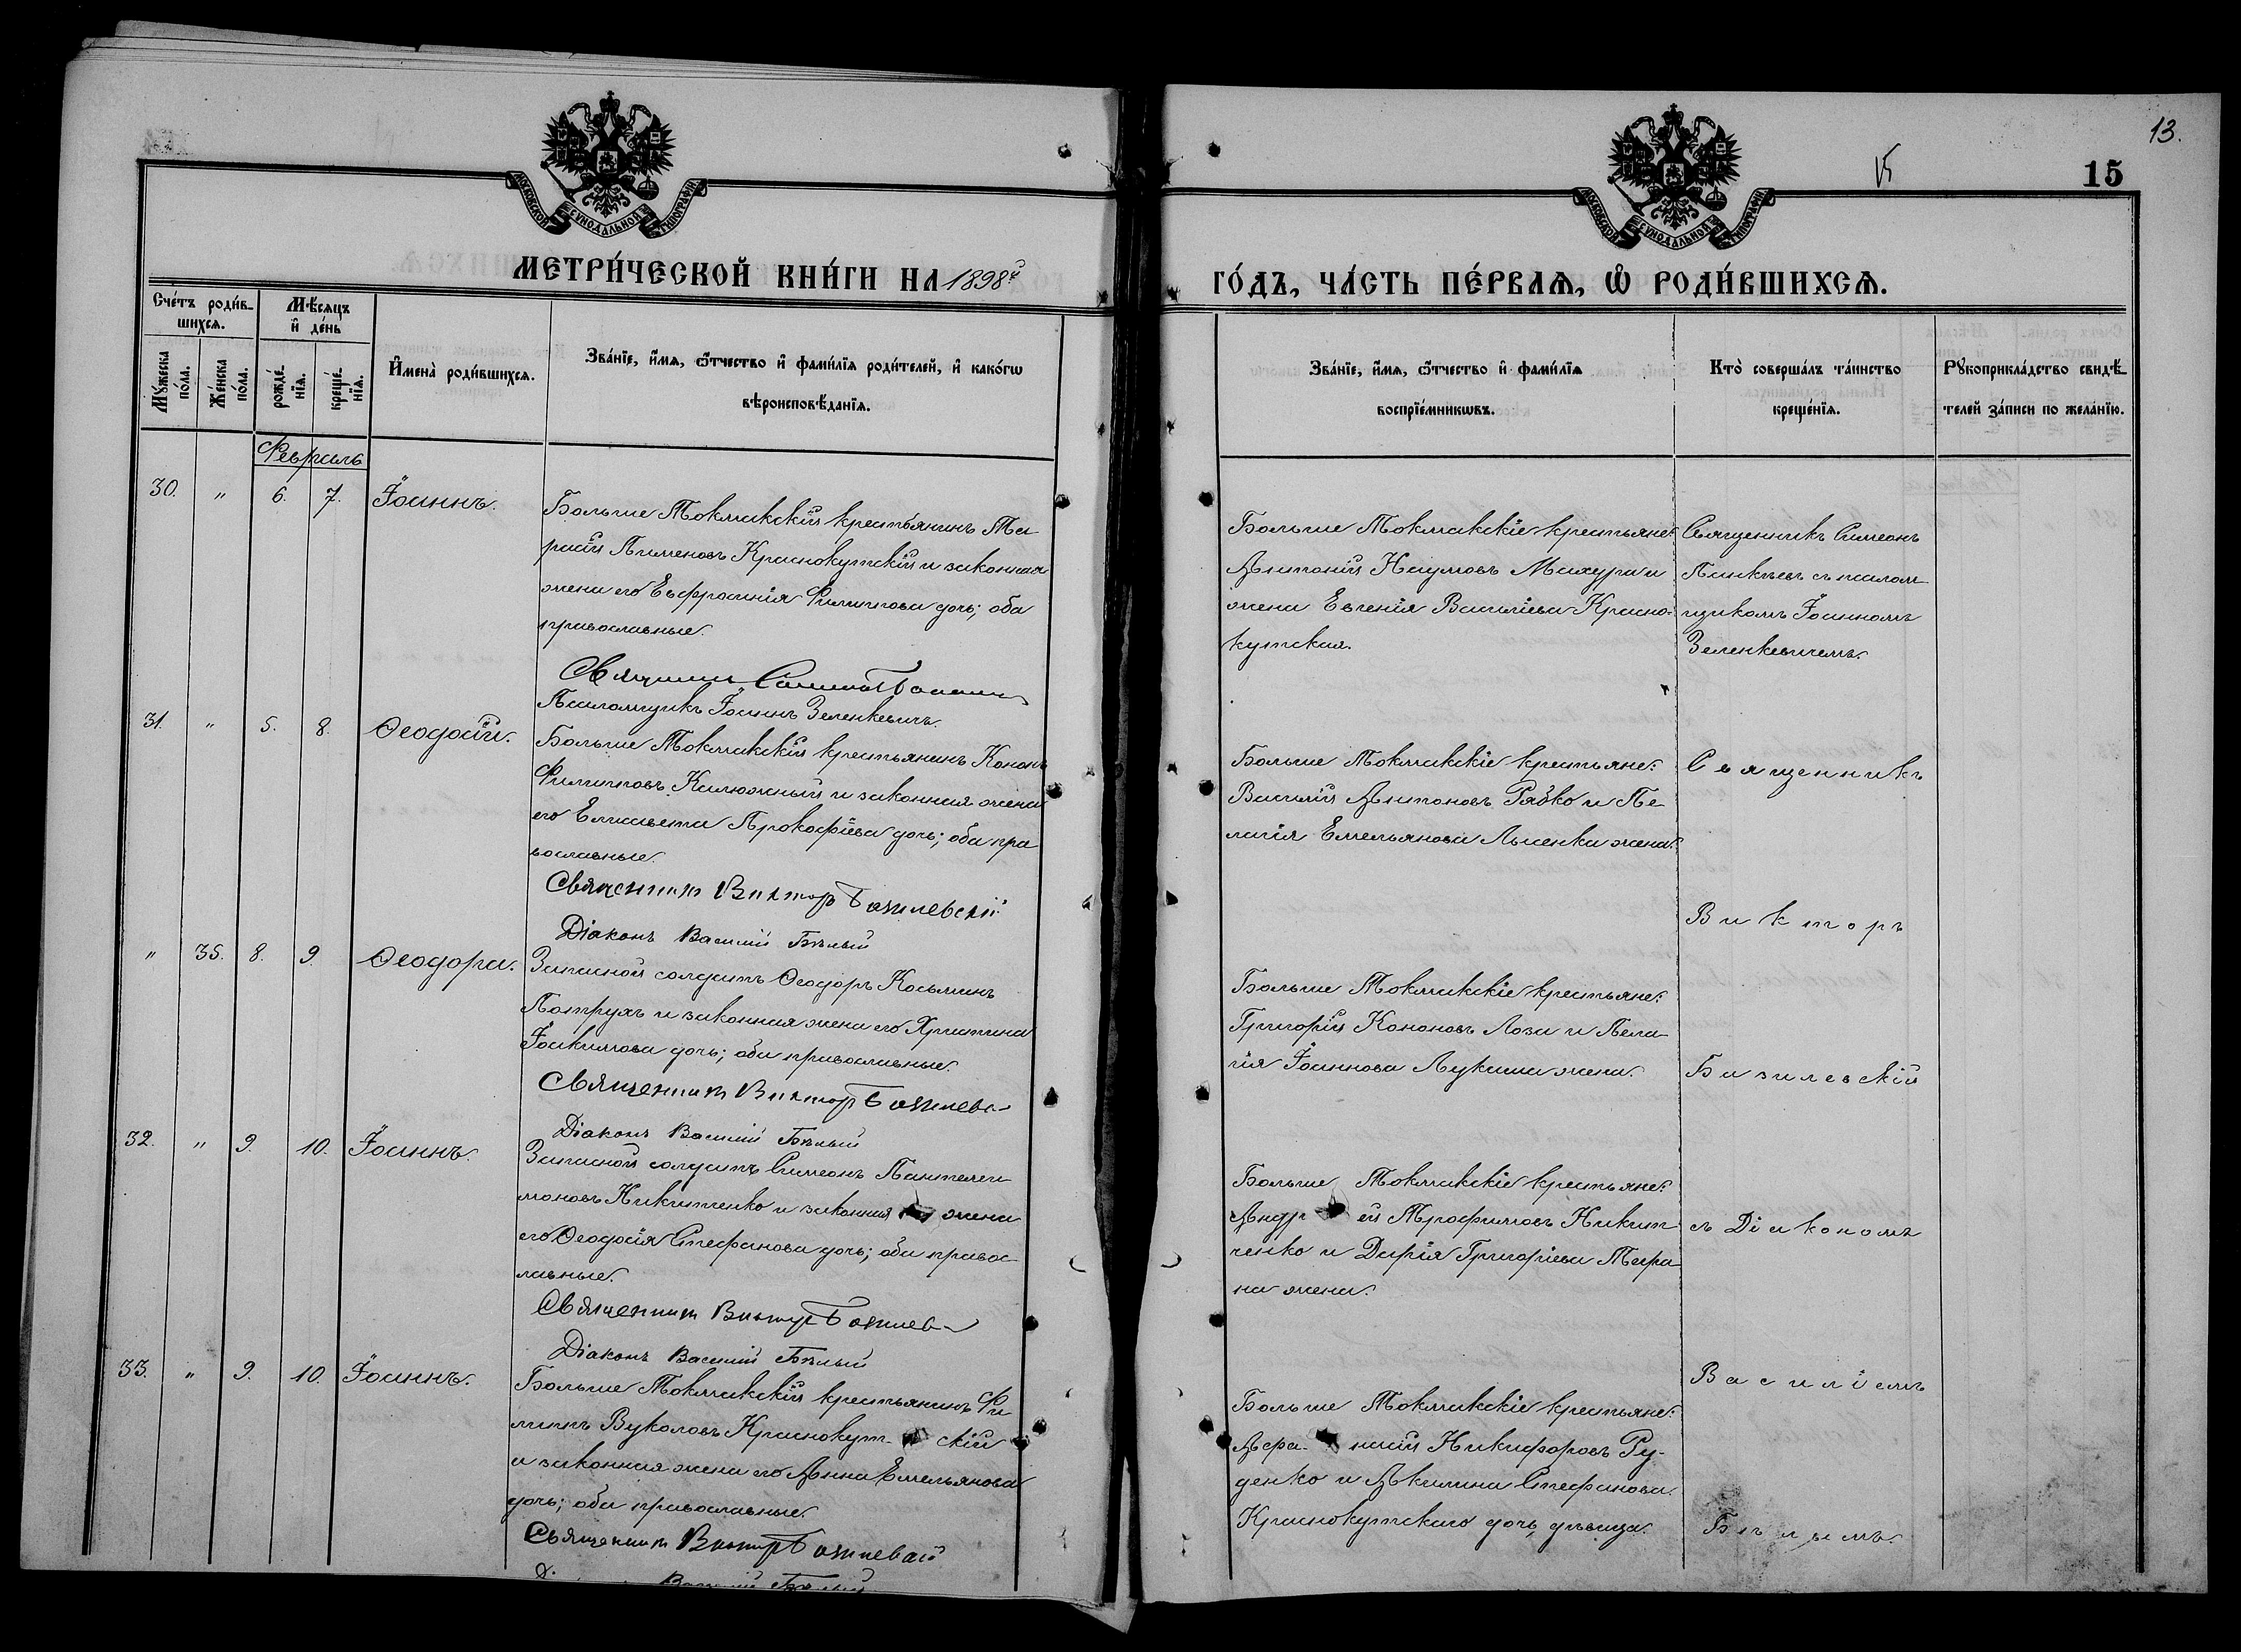 13.
15
МОСКОВСКОЙ СѴНОДАЛЬНОЙ ТИПОГРАФІИ
МОСКОВСКОЙ СѴНОДАЛЬНОЙ ТИПОГРАФІИ
МЕТРИ́ЧЕСКОЙ КНИ́ГИ НА 1898й
ГО́ДЪ, ЧА́СТЬ ПЕ́РВАѦ, Ѡ҆ РОДИ́ВШИХСѦ.
Сче́тъ роди́в-
шихсѧ.
Мꙋ́жеска по́ла.
Же́нска по́ла.
Мѣ́сѧцъ
и҆ де́нь
рожде́-нїѧ.
креще́-нїѧ.
И҆мена̀ роди́вшихсѧ.
Зва́нїе, и҆́мѧ, ѻ҆́тчество и҆ фами́лїѧ роди́телей, и҆ како́гѡ
вѣроисповѣ́данїѧ.
Зва́нїе, и҆́мѧ, ѻ҆́тчество и҆ фами́лїѧ
воспрїе́мникѡвъ.
Кто̀ соверша́лъ та́инство
креще́нїѧ.
Рꙋкоприкла́дство свидѣ́-
телей за́писи по жела́нїю.
Февраль
30. " 6. 7. Іоаннъ.
Больше Токмакскій крестьянинъ Та
расій Пименовъ Краснокутскій и законная
жена его Евфросинія Филиппова дочь; оба
православные.
Священник Симеон
Псаломщикъ Іоаннъ Зеленкевичъ.
Больше Токмакскіе крестьяне:
Антоній Наумовъ Махура и
жена Евгенія Василіева Красно-
кутская.
Священникъ Симеонъ
съ псалом
щикомъ Іоанномъ
Зеленкевичемъ.
31. " 5. 8. Ѳеодосій.
Больше Токмакскій крестьянинъ Кононъ
Филипповъ Калюжный и законная жена
его Елисавета Прокофіева дочь; оба пра
вославные.
Священник Виктор Базилевскій
Діаконъ Василій Бѣлый
Больше Токмакскіе крестьяне:
Василій Антоновъ Рябко и Пе
лагія Емельянова Лысенка жена.
Священникъ
Викторъ
" 35. 8. 9. Ѳеодора.
Запасной солдатъ Ѳеодоръ Косьминъ
Потрухъ и законная жена его Христина
Іоакимова дочь; оба православные.
Священник Виктор Базилевс
Діаконъ Василій Бѣлый
Больше Токмакскіе крестьяне:
Григорій Кононовъ Лоза и Пела
гія Іоаннова Лукаша жена.
Базилевскій
32. " 9. 10. Іоаннъ.
Запасной солдатъ Симеонъ Пантелеи
моновъ Никитенко и законная жена
его Ѳеодосія Стефанова дочь; оба правос
лавные.
Священник Виктор Базилев
Діаконъ Василій Бѣлый
Больше Токмакскіе крестьяне:
Андр ей Трофимовъ Никит
ченко и Дарія Григоріева Тара
на жена.
съ Діакономъ
33. " 9. 10. Іоаннъ.
Больше Токмакскій крестьянинъ Фи
липпъ Вуколовъ Краснокут- скій
и законная жена его Анна Емельянова
дочь; оба православные.
Священник Виктор Базилевскій
Василій Бѣлый
Больше Токмакскіе крестьяне:
Афа- насій Никифоровъ Ру-
денко и Акилина Стефанова
Краснокутскаго дочь, дѣвица.
Василіемъ
Бѣлымъ.